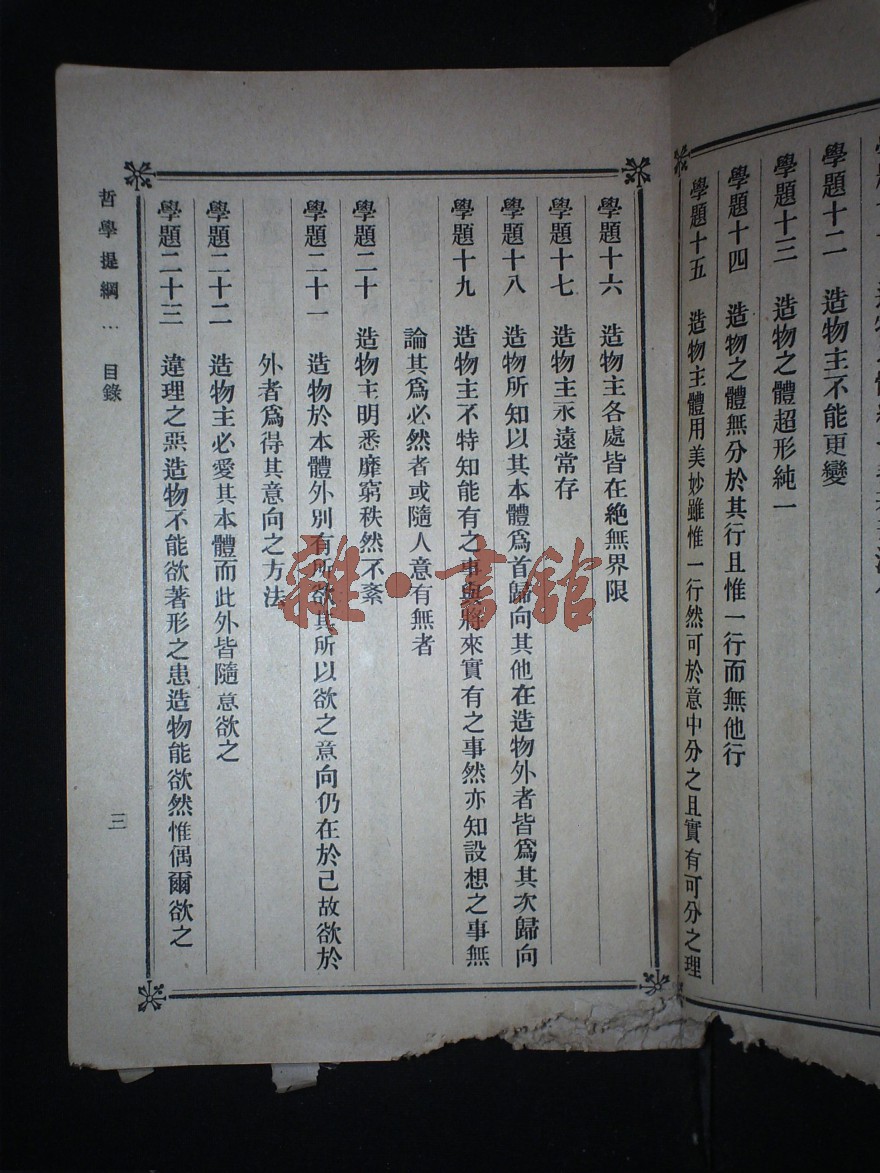 學題十二　造物主不能更變
學題十三　造物之體超形純一
學題十四　造物之體無分於其行且惟一行而無他行
學題十五　造物主體用美妙雖惟一行然可於意中分之且實有可分之理
學題十六　造物主各處皆在絕無界限
學題十七　造物主永遠常存
學題十八　造物所知以其本體爲首歸向其他在造物外者皆爲其次歸向
學題十九　造物主不特知能有之事與將來實有之事然亦知設想之事無
論其爲必然者或隨人意有無者
學題二十　造物主明悉靡窮秩然不紊
學題二十一　造物於本體外別有所欲其所以欲之意向仍在於己故欲於
外者爲得其意向之方法
學題二十二　造物主必愛其本體而此外皆隨意欲之
學題二十三　違理之惡造物不能欲著形之患造物能欲然惟偶爾欲之
哲學提綱…　目錄　三
雜·書舘